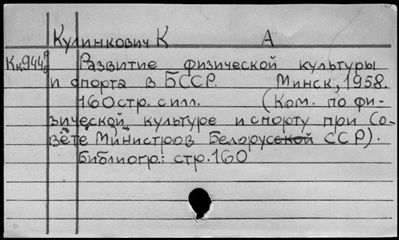 Кулинкович К А
Кн944
Развитие физической культуры
и спорта в БССР. Минск, 1958.
160 стр. с илл. (Ком. по фи-
зической культуре и спорту при Со-
вете Министров Белорусской ССР).
Библиогр.: стр. 160